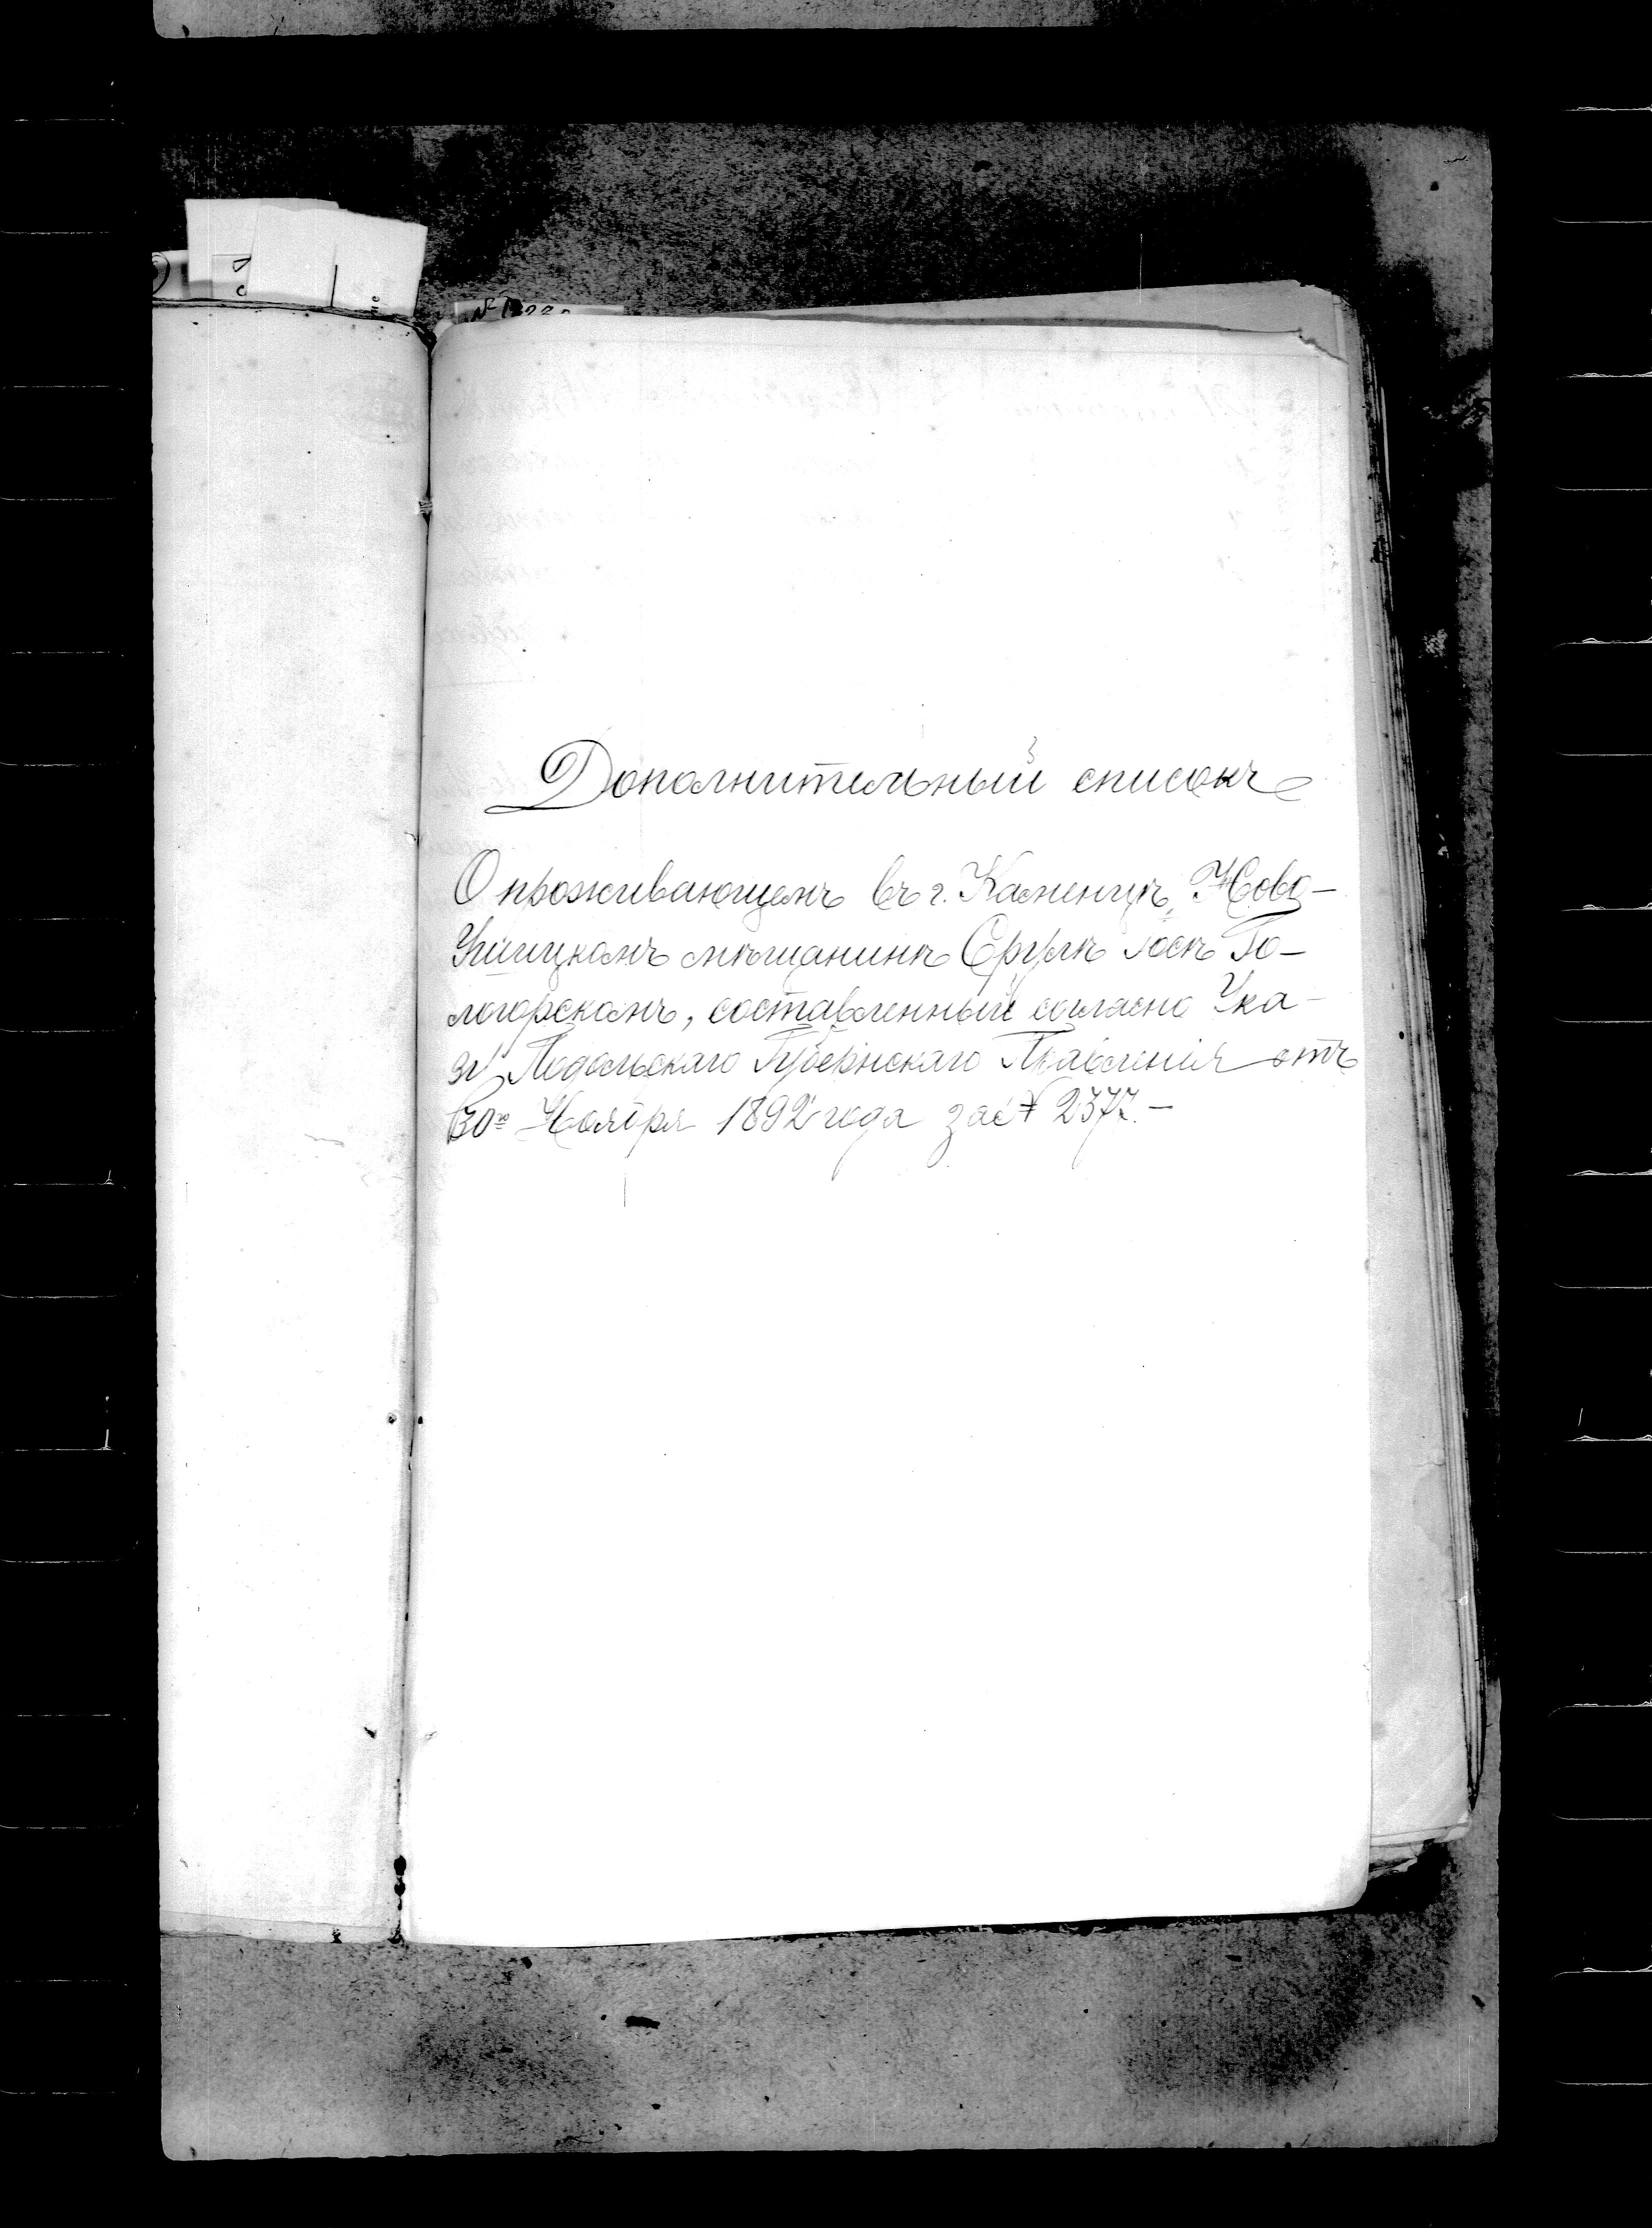 Дополнительный списокъ
О проживающемъ въ г. Каменцѣ, Ново-
Ушицкомъ мѣщанинѣ Срулѣ Іосѣ Го-
логорскомъ, составленный согласно Ука-
зу Подольскаго Губернскаго Правленія отъ
30го Ноября 1892 года за № 2377.-